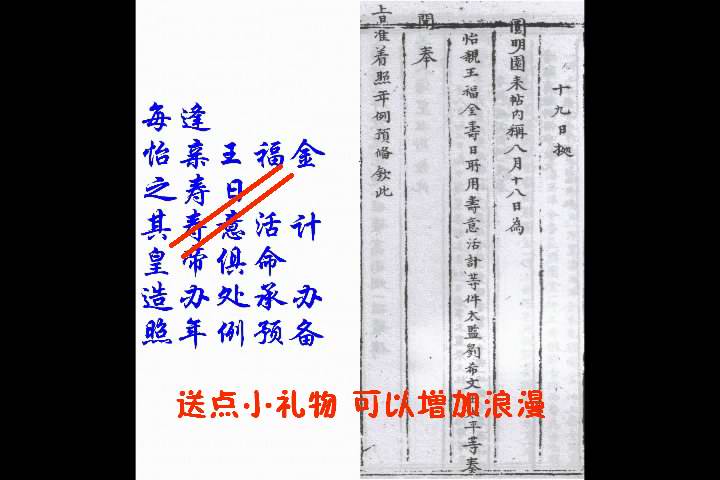 每逢
怡亲王福金
之寿日
其寿意活计
皇帝俱命
造办处承办
照年例预备
十九日據
圓明園来帖内稱八月十八日為
怡親王福金壽日所用壽意活計等件太監劉希文平等奏
聞奉
旨准着照年例預備欽此
送点小礼物 可以增加浪漫